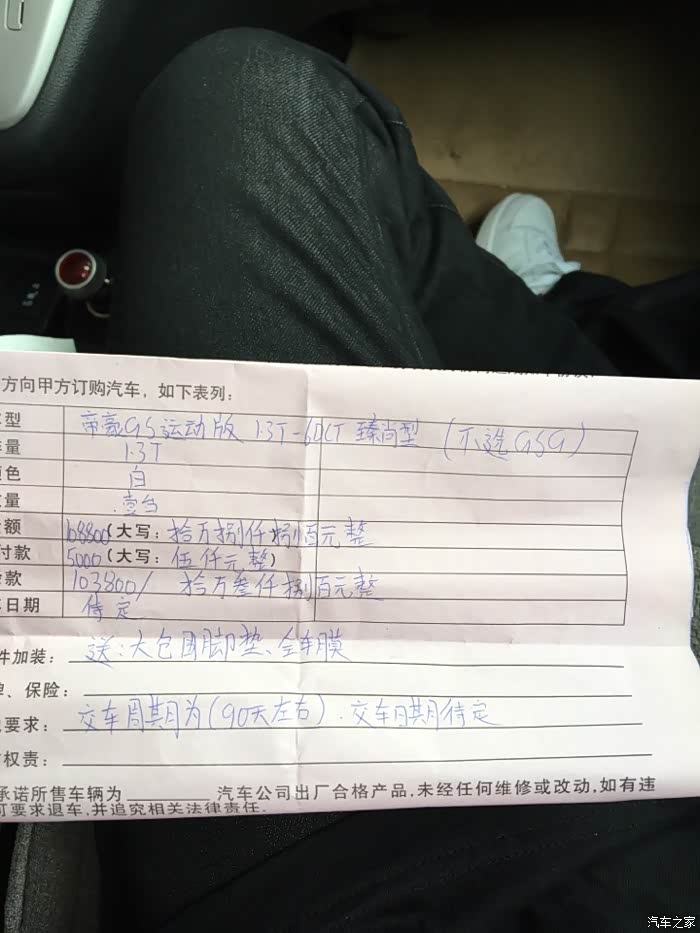 方向甲方订购汽车，如下表列：
型 帝豪GS运动版 1.3T-6DCT 臻尚型（不选GSG）
量 1.3T
颜色 白
量 壹台
额 108800（大写：拾万捌仟捌佰元整
付款 5000（大写：伍仟元整）
款 103800/ 拾万叁仟捌佰元整
日期 待定
件加装：送：大包围脚垫、全车膜
、保险：
要求：交车周期为（90天左右）.交车日期待定
权责：
承诺所售车辆为 汽车公司出厂合格产品,未经任何维修或改动,如有违
可要求退车,并追究相关法律责任.
汽车之家